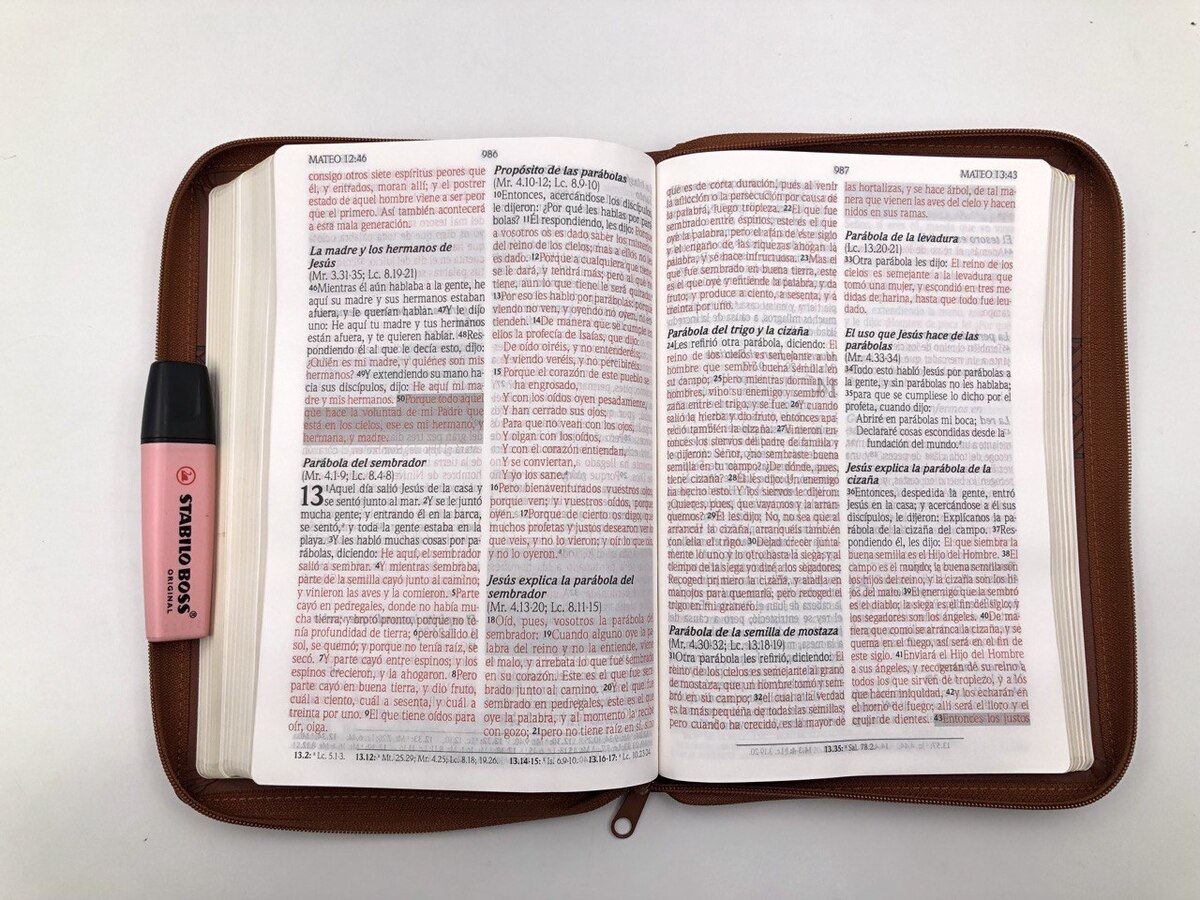 STABILO BOSS®
ORIGINAL
MATEO 12:46
986
consigo otros siete espíritus peores que
él, y entrados, moran allí; y el postrer
estado de aquel hombre viene a ser peor
que el primero. Así también acontecerá
a esta mala generación.
La madre y los hermanos de
Jesús
(Mr. 3.31-35; Lc. 8.19-21)
46Mientras él aún hablaba a la gente, he
aquí su madre y sus hermanos estaban
afuera, y le querían hablar. 47Y le dijo
uno: He aquí tu madre y tus hermanos
están afuera, y te quieren hablar. 48Res-
pondiendo él al que le decía esto, dijo:
¿Quién es mi madre, y quiénes son mis
hermanos? 49Y extendiendo su mano ha-
cia sus discípulos, dijo: He aquí mi ma-
dre y mis hermanos. 50Porque todo aquel
que hace la voluntad de mi Padre que
está en los cielos, ese es mi hermano, y
hermana, y madre.
Parábola del sembrador
(Mr. 4.1-9; Lc. 8.4-8)
13 1Aquel día salió Jesús de la casa y
se sentó junto al mar. 2Y se le juntó
mucha gente; y entrando él en la barca,
se sentó, y toda la gente estaba en la
playa. 3Y les habló muchas cosas por pa-
rábolas, diciendo: He aquí, el sembrador
salió a sembrar. 4Y mientras sembraba,
parte de la semilla cayó junto al camino;
y vinieron las aves y la comieron. 5Parte
cayó en pedregales, donde no había mu-
cha tierra; y brotó pronto, porque no te-
nía profundidad de tierra; 6pero salido el
sol, se quemó; y porque no tenía raíz, se
secó. 7Y parte cayó entre espinos; y los
espinos crecieron, y la ahogaron. 8Pero
parte cayó en buena tierra, y dio fruto,
cuál a ciento, cuál a sesenta, y cuál a
treinta por uno. 9El que tiene oídos para
oír, oiga.
Propósito de las parábolas
(Mr. 4.10-12; Lc. 8.9-10)
10Entonces, acercándose los discípulos,
le dijeron: ¿Por qué les hablas por pará-
bolas? 11Él respondiendo, les dijo: Porque
a vosotros os es dado saber los misterios
del reino de los cielos; mas a ellos no les
es dado. 12Porque a cualquiera que tiene,
se le dará, y tendrá más; pero al que no
tiene, aun lo que tiene le será quitado.
13Por eso les hablo por parábolas: porque
viendo no ven, y oyendo no oyen, ni en-
tienden. 14De manera que se cumple en
ellos la profecía de Isaías, que dijo:
De oído oiréis, y no entenderéis;
Y viendo veréis, y no percibiréis.
15 Porque el corazón de este pueblo se
ha engrosado,
Y con los oídos oyen pesadamente,
Y han cerrado sus ojos;
Para que no vean con los ojos,
Y oigan con los oídos,
Y con el corazón entiendan,
Y se conviertan,
Y yo los sane.
16Pero bienaventurados vuestros ojos,
porque ven; y vuestros oídos, porque
oyen. 17Porque de cierto os digo, que
muchos profetas y justos desearon ver lo
que veis, y no lo vieron; y oír lo que oís,
y no lo oyeron.
Jesús explica la parábola del
sembrador
(Mr. 4.13-20; Lc. 8.11-15)
18Oíd, pues, vosotros la parábola del
sembrador: 19Cuando alguno oye la pa-
labra del reino y no la entiende, viene
el malo, y arrebata lo que fue sembrado
en su corazón. Este es el que fue sem-
brado junto al camino. 20Y el que fue
sembrado en pedregales, este es el que
oye la palabra, y al momento la recibe
con gozo; 21pero no tiene raíz en sí, sino
13.2: Lc. 5.1-3. 13.12: Mt. 25.29; Mr. 4.25; Lc. 8.18; 19.26. 13.14-15: Is. 6.9-10. 13.16-17: Lc. 10.23-24.
987
MATEO 13:43
que es de corta duración, pues al venir
la aflicción o la persecución por causa de
la palabra, luego tropieza. 22El que fue
sembrado entre espinos, este es el que
oye la palabra, pero el afán de este siglo
y el engaño de las riquezas ahogan la
palabra, y se hace infructuosa. 23Mas el
que fue sembrado en buena tierra, este
es el que oye y entiende la palabra, y da
fruto; y produce a ciento, a sesenta, y a
treinta por uno.
Parábola del trigo y la cizaña
24Les refirió otra parábola, diciendo: El
reino de los cielos es semejante a un
hombre que sembró buena semilla en
su campo; 25pero mientras dormían los
hombres, vino su enemigo y sembró ci-
zaña entre el trigo, y se fue. 26Y cuando
salió la hierba y dio fruto, entonces apa-
reció también la cizaña. 27Vinieron en-
tonces los siervos del padre de familia y
le dijeron: Señor, ¿no sembraste buena
semilla en tu campo? ¿De dónde, pues,
tiene cizaña? 28Él les dijo: Un enemigo
ha hecho esto. Y los siervos le dijeron:
¿Quieres, pues, que vayamos y la arran-
quemos? 29Él les dijo: No, no sea que al
arrancar la cizaña, arranquéis también
con ella el trigo. 30Dejad crecer junta-
mente lo uno y lo otro hasta la siega; y al
tiempo de la siega yo diré a los segadores:
Recoged primero la cizaña, y atadla en
manojos para quemarla; pero recoged el
trigo en mi granero.
Parábola de la semilla de mostaza
(Mr. 4.30-32; Lc. 13.18-19)
31Otra parábola les refirió, diciendo: El
reino de los cielos es semejante al grano
de mostaza, que un hombre tomó y sem-
bró en su campo; 32el cual a la verdad
es la más pequeña de todas las semillas;
pero cuando ha crecido, es la mayor de
las hortalizas, y se hace árbol, de tal ma-
nera que vienen las aves del cielo y hacen
nidos en sus ramas.
Parábola de la levadura
(Lc. 13.20-21)
33Otra parábola les dijo: El reino de los
cielos es semejante a la levadura que
tomó una mujer, y escondió en tres me-
didas de harina, hasta que todo fue leu-
dado.
El uso que Jesús hace de las
parábolas
(Mr. 4.33-34)
34Todo esto habló Jesús por parábolas a
la gente, y sin parábolas no les hablaba;
35para que se cumpliese lo dicho por el
profeta, cuando dijo:
Abriré en parábolas mi boca;
Declararé cosas escondidas desde la
fundación del mundo.
Jesús explica la parábola de la
cizaña
36Entonces, despedida la gente, entró
Jesús en la casa; y acercándose a él sus
discípulos, le dijeron: Explícanos la pa-
rábola de la cizaña del campo. 37Res-
pondiendo él, les dijo: El que siembra la
buena semilla es el Hijo del Hombre. 38El
campo es el mundo; la buena semilla son
los hijos del reino, y la cizaña son los hi-
jos del malo. 39El enemigo que la sembró
es el diablo; la siega es el fin del siglo; y
los segadores son los ángeles. 40De ma-
nera que como se arranca la cizaña, y se
quema en el fuego, así será en el fin de
este siglo. 41Enviará el Hijo del Hombre
a sus ángeles, y recogerán de su reino a
todos los que sirven de tropiezo, y a los
que hacen iniquidad, 42y los echarán en
el horno de fuego; allí será el lloro y el
crujir de dientes. 43Entonces los justos
13.35: Sal. 78.2.